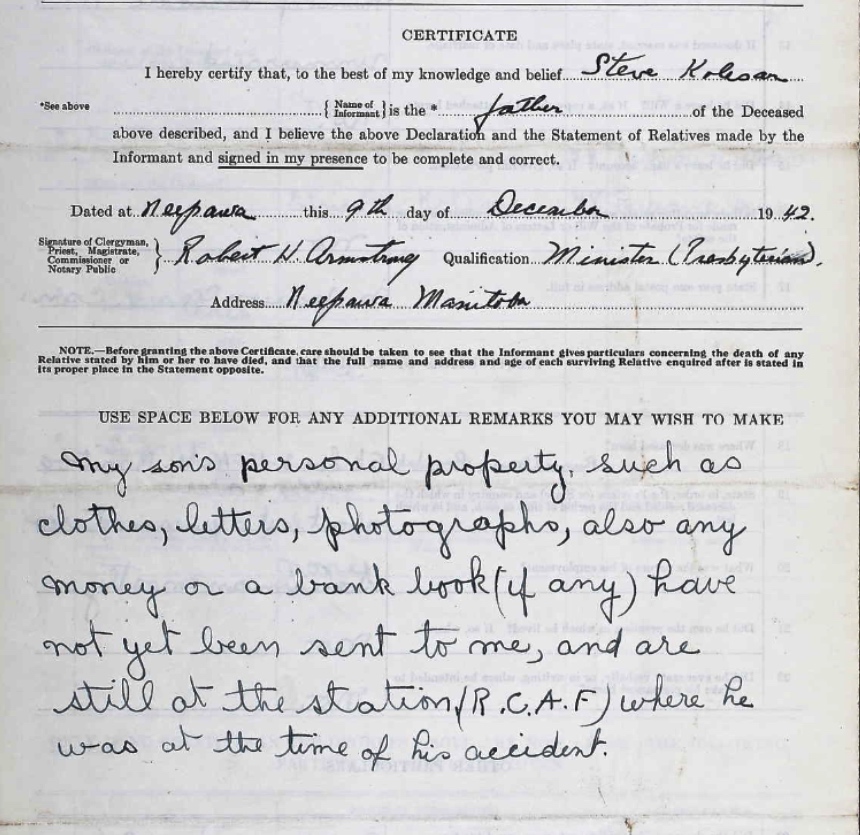 CERTIFICATE
I hereby certify that, to the best of my knowledge and belief Steve Kolesar
*See above { Name of Informant } is the * father of the Deceased
above described, and I believe the above Declaration and the Statement of Relatives made by the
Informant and signed in my presence to be complete and correct.
Dated at Neepawa this 9th day of December 1942.
Signature of Clergyman, Priest, Magistrate, Commissioner or Notary Public } Robert H Armstrong Qualification Minister (Presbyterian).
Address Neepawa Manitoba
NOTE.—Before granting the above Certificate, care should be taken to see that the Informant gives particulars concerning the death of any
Relative stated by him or her to have died, and that the full name and address and age of each surviving Relative enquired after is stated in
its proper place in the Statement opposite.
USE SPACE BELOW FOR ANY ADDITIONAL REMARKS YOU MAY WISH TO MAKE
My son's personal property, such as
clothes, letters, photographs, also any
money or a bank book (if any) have
not yet been sent to me, and are
still at the station (R.C.A.F) where he
was at the time of his accident.